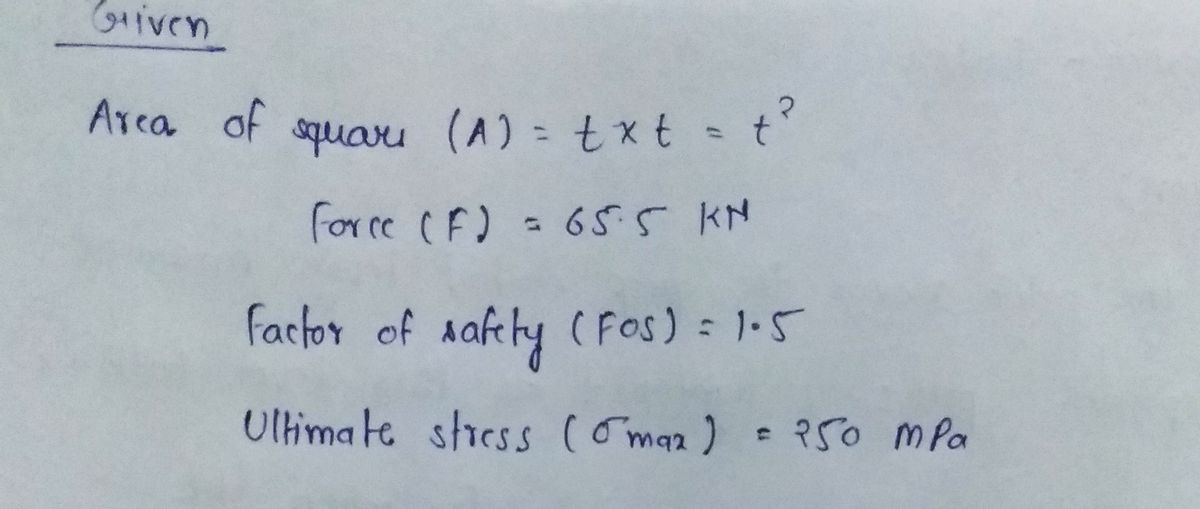 Given
Area of square (A) = t x t = t²
Force (F) = 65.5 KN
Factor of safety (FOS) = 1.5
Ultimate stress (σmax) = 250 mPa